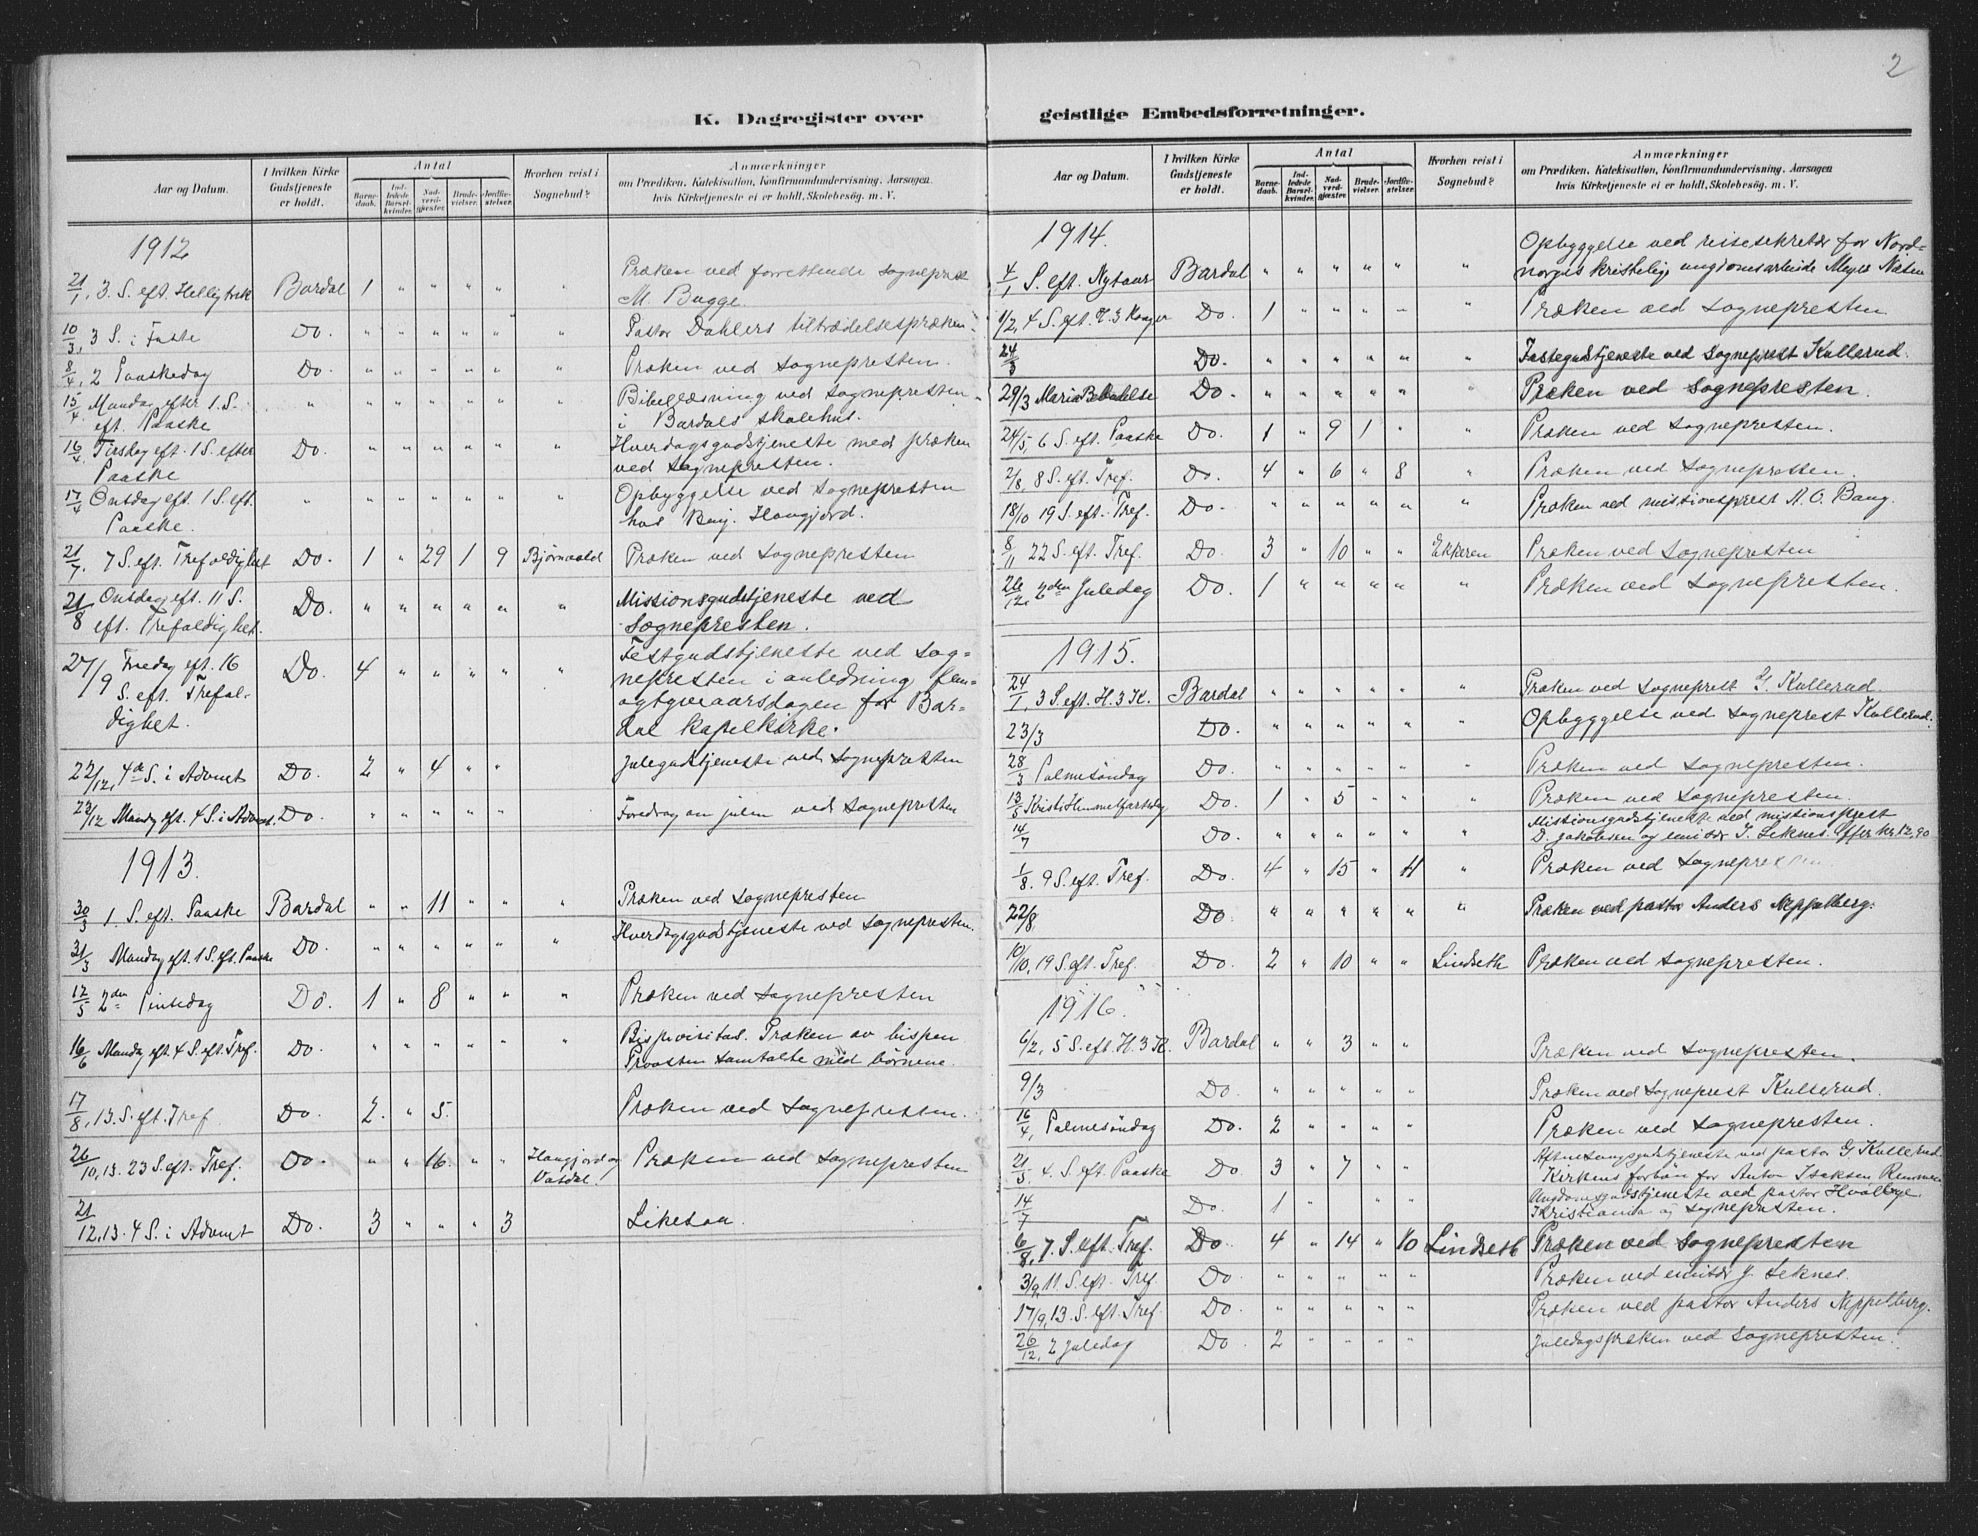 2
K. Dagregister over
Aar og Datum.
I hvilken Kirke Gudstjeneste er holdt.
Antal
Barne-daab.
Ind-ledede Barsel-kvinder.
Nad-verd-gjæster.
Brude-vielser.
Jordfæ-stelser.
Hvorhen reist i Sognebud?
Anmærkninger
om Prædiken, Katekisation, Konfirmandundervisning, Aarsagen
hvis Kirketjeneste ei er holdt, Skolebesøg. m. V.
1912
21/1, 3. S. eft. Helligtrek Bardal 1 " " " " " Præken ved forrettende sogneprest
M. Bugge.
10/3, 3 S. i Faste Do. " " " " " " Pastor Dahlers tiltrædelsespræken
8/4, 2 Paaskedag Do. " " " " " " Præken ved sognepresten.
15/4 Mandag efter 1. S. " " " " " " " Bibellæsning ved sognepresten
eft. Paaske i Bardals skolehus.
16/4 Tirsdag eft. 1 S. efter Do. " " " " " " Hverdagsgudstjeneste med præken
Paaske ved sognepresten.
17/4 Onsdag eft. 1 S. eft. " " " " " " " Opbyggelse ved sognepresten
Paaske. hos Benj. Haugjord.
21/7. 7 S. eft. Trefoldighet Do. 1 " 29 1 9 Bjørnvald Præken ved sognepresten
21/8 Onsdag eft. 11 S. Do. " " " " " " Missionsgudstjeneste ved
eft. Trefoldighet. sognepresten.
27/9 Fredag eft. 16 Do. 4 " " " " " Festgudstjeneste ved sog=
S. eft. Trefol- nepresten i anledning fem-
dighet. ogtyveaarsdagen for Bar-
dal kapelkirke.
22/12, 4de S. i Advent Do. 2 " 4 " " Julegudstjeneste ved sognepresten
23/12 Mandag eft. 4 S. i Advent. Do. " " " " " Foredrag om julen ved sognepresten
1913.
30/3 1. S. eft. Paaske Bardal " " 11 " " " Præken ved sognepresten
31/3 Mandag eft. 1 S. eft. Paaske Do. " " " " " " Hverdagsgudstjeneste ved sognepresten.
12/5 2den Pintsedag Do. 1 " 8 " " " Præken ved sognepresten
16/6 Mandag eft. 4 S. eft. Tref. Do. " " " " " " Bispevisitas. Præken av bispen
Provsten samtalte med börnene.
17/8, 13. S. eft. Tref Do. 2. " 5. Præken ved sognepresten.
26/10, 13. 23 S. eft. Tref. Do. " " 16. " " Haugjord og Præken ved sognepresten
Vatdal.
21/12, 13. 4 S. i Advent Do. 3 " " " 3 Likesaa.
geistlige Embedsforretninger.
Aar og Datum.
I hvilken Kirke Gudstjeneste er holdt.
Antal
Barne-daab.
Ind-ledede Barsel-kvinder.
Nad-verd-gjæster.
Brude-vielser.
Jordfæ-stelser.
Hvorhen reist i Sognebud?
Anmærkninger
om Prædiken, Katekisation, Konfirmandundervisning, Aarsagen
hvis Kirketjeneste ei er holdt, Skolebesøg. m. V.
1914.
Opbyggelse ved reisesekretær for Nord-
4/1 S. eft. Nytaar Bardal " " " " " " norges kristelig ungdomsarbeide
1/2, 4 S. eft. H. 3 Konger Do. 1 " " " " Præken ved sognepresten
24/3 Do. " " " " " " Fastegudstjeneste ved sogneprest Kullerud.
29/3 Mariæ Bebudelse Do. " " " " " " Præken ved sognepresten.
24/5, 6 S. eft. Paaske Do. 1 " 9 1 " " Præken ved sognepresten.
2/8, 8 S. eft. Tref. Do. 4 " 6 " 8 " Præken ved sognepresten.
18/10 19 S. eft. Tref. Do. " " " " " " Præken ved missionsprest A. O. Bang.
8/11 22 S. eft. Tref. Do. 3 " 10 " " Ekkeren Præken ved sognepresten
26/12. 2den Juledag Do. 1 " " " " " Præken ved sognepresten.
1915.
24/1, 3 S. eft. H. 3 K. Bardal " " " " " " Præken ved sogneprest G. Kullerud.
23/3 Do. " " " " " " Opbyggelse ved sogneprest Kullerud.
28/3 Palmesöndag Do. " " " " " Præken ved sognepresten.
13/5 Kristi Himmelfartsdag Do. 1 " 5 " " " Præken ved sognepresten.
Missionsgudstjeneste ved missionsprest
14/7 Do. " " " " " " D. Jakobsen og emissær J. Seknes. Offer kr. 12,90
1/8. 9 S. eft. Tref. Do. 4 " 15 " 4 " Præken ved sognepresten
22/8 Do. " " " " " " Præken ved pastor Anders Neppelberg.
10/10, 19 S. eft. Tref. Do. 2 " 10 " " Lindseth Præken ved sognepresten.
1916.
6/2, 5 S. eft. H. 3 K. Bardal " " 3 " " Præken ved sognepresten.
9/3 Do " " " " " Præken ved sogneprest Kullerud.
16/4, Palmesöndag Do. 2 " " " " Præken ved sognepresten.
21/5. 4. S. eft. Paaske Do. 3 " 7 " " Aftensangsgudstjeneste ved pastor G. Kullerud
Kirkens forbön for Anton Isaksen
Ungdomsgudstjeneste ved pastor Hvalbye
14/7 Do. 1 " " " Kristiania og sognepresten.
6/8, 7. S. eft. Tref. Do 4 " 14 " 10 Lindseth Præken ved sognepresten
3/9, 11 S. eft. Tref. Do. " " " " " Præken ved emissær J. Seknes.
17/9, 13. S. eft. Tref. Do. " " " " " Præken ved pastor Anders Neppelberg.
26/12, 2 Juledag Do 2 " " " " Juledagspræken ved sognepresten.